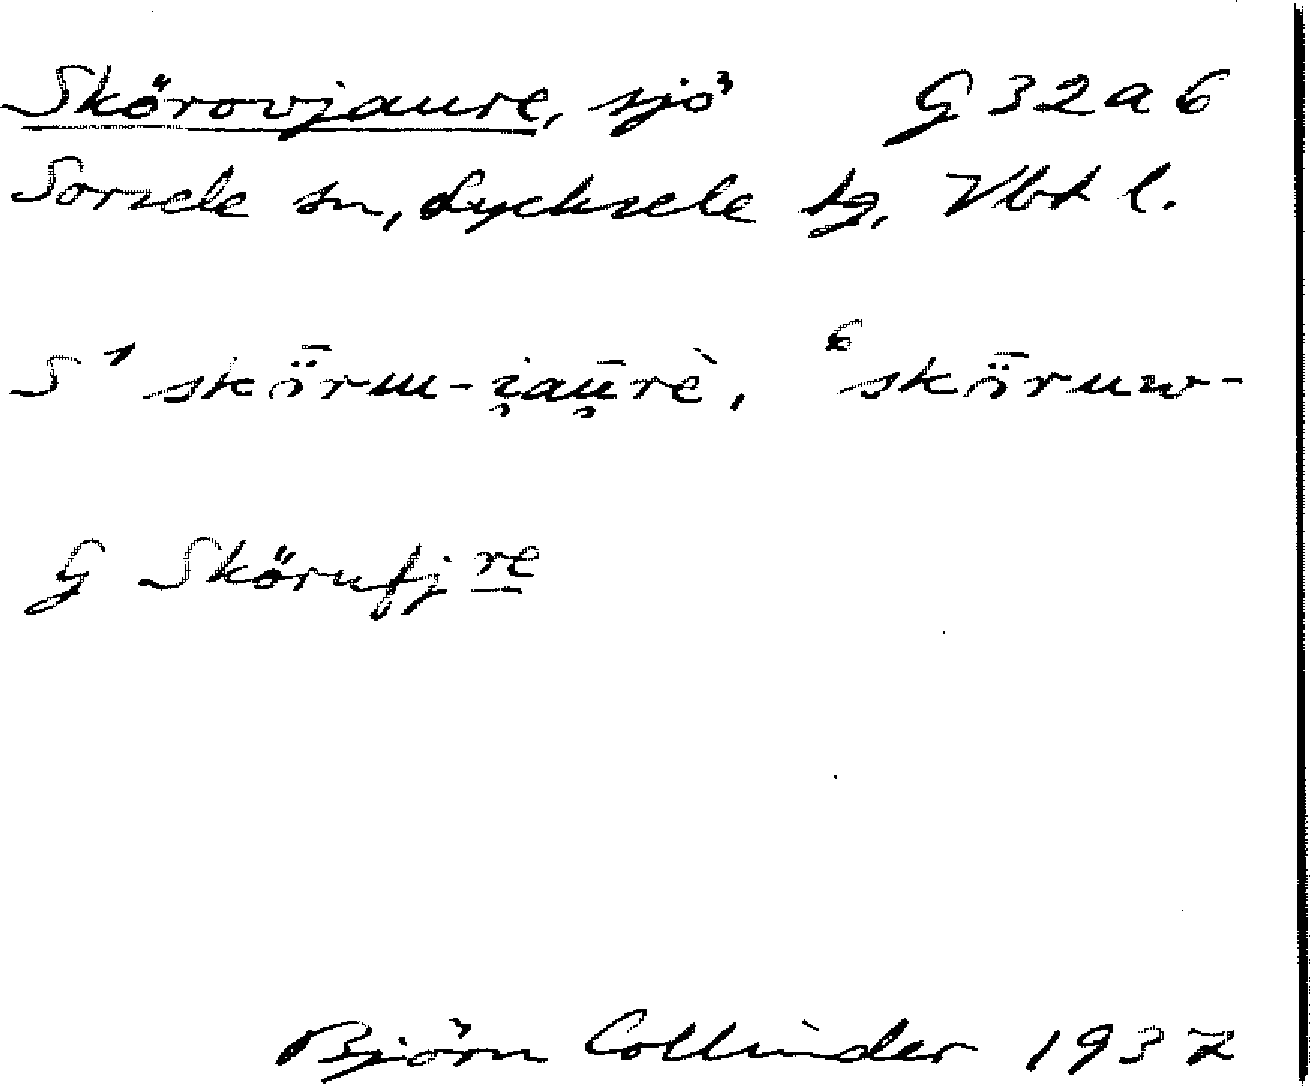 Skörovjaure, sjö G 32 a 6
Sorsele sn, Lycksele tg, Vbt l.
S ¹ skȫrm-i̯au̯̅rè, ⁶ skȫruw-
G Skörufj re
Björn Collinder 1937